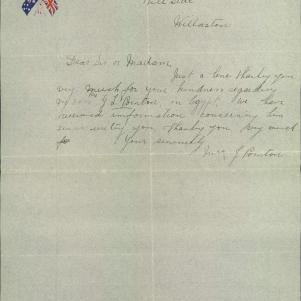 Hill Side
Willaston
Dear Sir or Madam
Just a line thanking you
very much for your kindness regarding
my son J L Pointon in Egypt, we have
received information concerning him
since writing you, thanking you very much
Yours sincerely
Mrs J Pointon